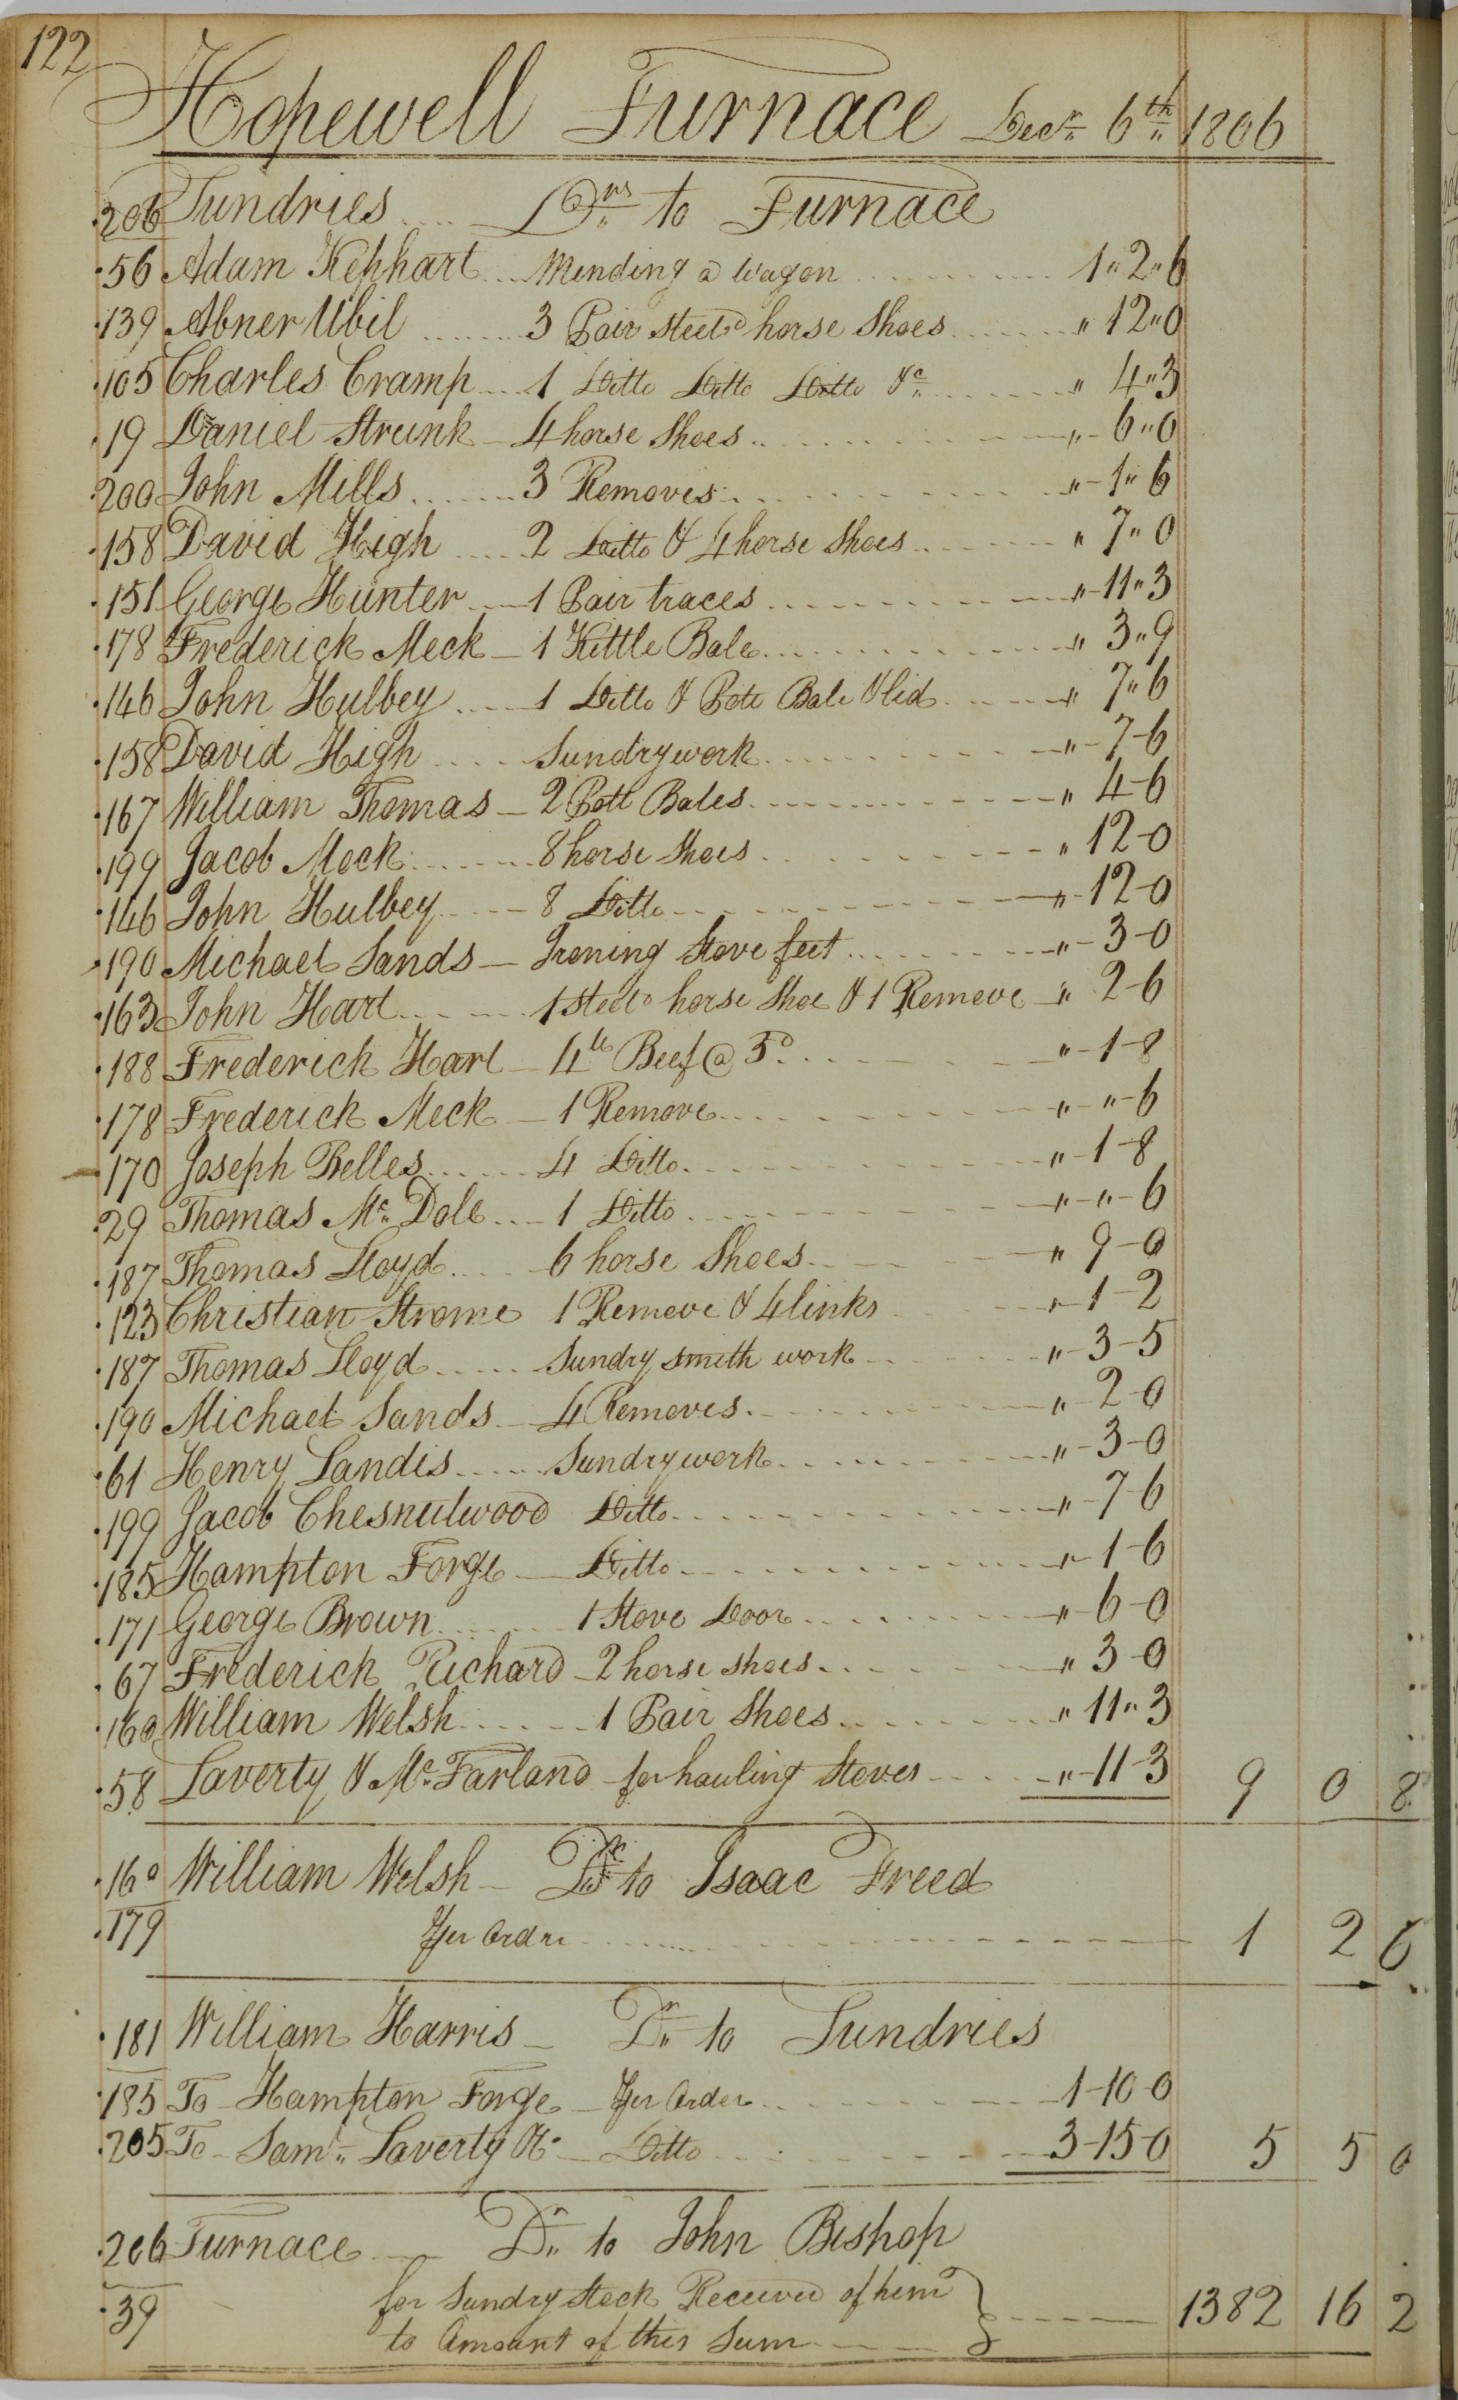 122
Hopewell Furnace Decr 6th 1806
206 Sundries Drs to Furnace
56 Adam Kephart Mending a Wagon 1 " 2 " 6
139 Abner Ubil 3 Pair Steeld horse Shoes " 12 " 0
105 Charles Cramp 1 Ditto Ditto Ditto &c " 4 " 3
19 Daniel Strunk 4 horse Shoes " 6 " 0
200 John Mills 3 Removes " 1 " 6
158 David High 2 Ditto & 4 horse Shoes " 7 " 0
151 George Hunter 1 Pair traces " 11 " 3
178 Frederick Meck 1 Kittle Bale " 3 " 9
146 John Hulbey 1 Ditto & Pott Bale & lid " 7 " 6
158 David High Sundry work " 7-6
167 William Thomas 2 Pott Bales " 4-6
199 Jacob Mock 8 horse Shoes " 12-0
146 John Hulbey 8 Ditto " 12-0
190 Michael Sands Ironing Stove feet " 3-0
163 John Hart 1 Steeld horse Shoe & 1 Remove " 2-6
188 Frederick Hart 4 lb Beef @ 5d " 1-8
178 Frederick Meck 1 Remove " " 6
170 Joseph Belles 4 Ditto " 1-8
29 Thomas Mc Dole 1 Ditto " " 6
187 Thomas Lloyd 6 horse Shoes " 9-0
123 Christian Strome 1 Remove & 4 links " 1-2
187 Thomas Lloyd Sundry smith work " 3-5
190 Michael Sands 4 Removes " 2-0
61 Henry Landis Sundry work " 3-0
199 Jacob Chesnutwood Ditto " 7-6
185 Hampton Forge Ditto " 1-6
171 George Brown 1 Stove Door " 6-0
67 Frederick Richard 2 horse shoes " 3-0
160 William Welsh 1 Pair Shoes " 11 " 3
58 Laverty & Mc Farland for hauling Stoves " 11-3 9 0 8
160 William Welsh Dr to Isaac Freed
179 Per Order 1 2 6
181 William Harris Dr to Sundries
185 To Hampton Forge Per Order 1-10-0
205 To Saml Laverty & Co Ditto 3-15-0 5 5 0
206 Furnace Dr to John Bishop
39 for Sundry Stock Received of him
to Amount of this Sum 1382 16 2